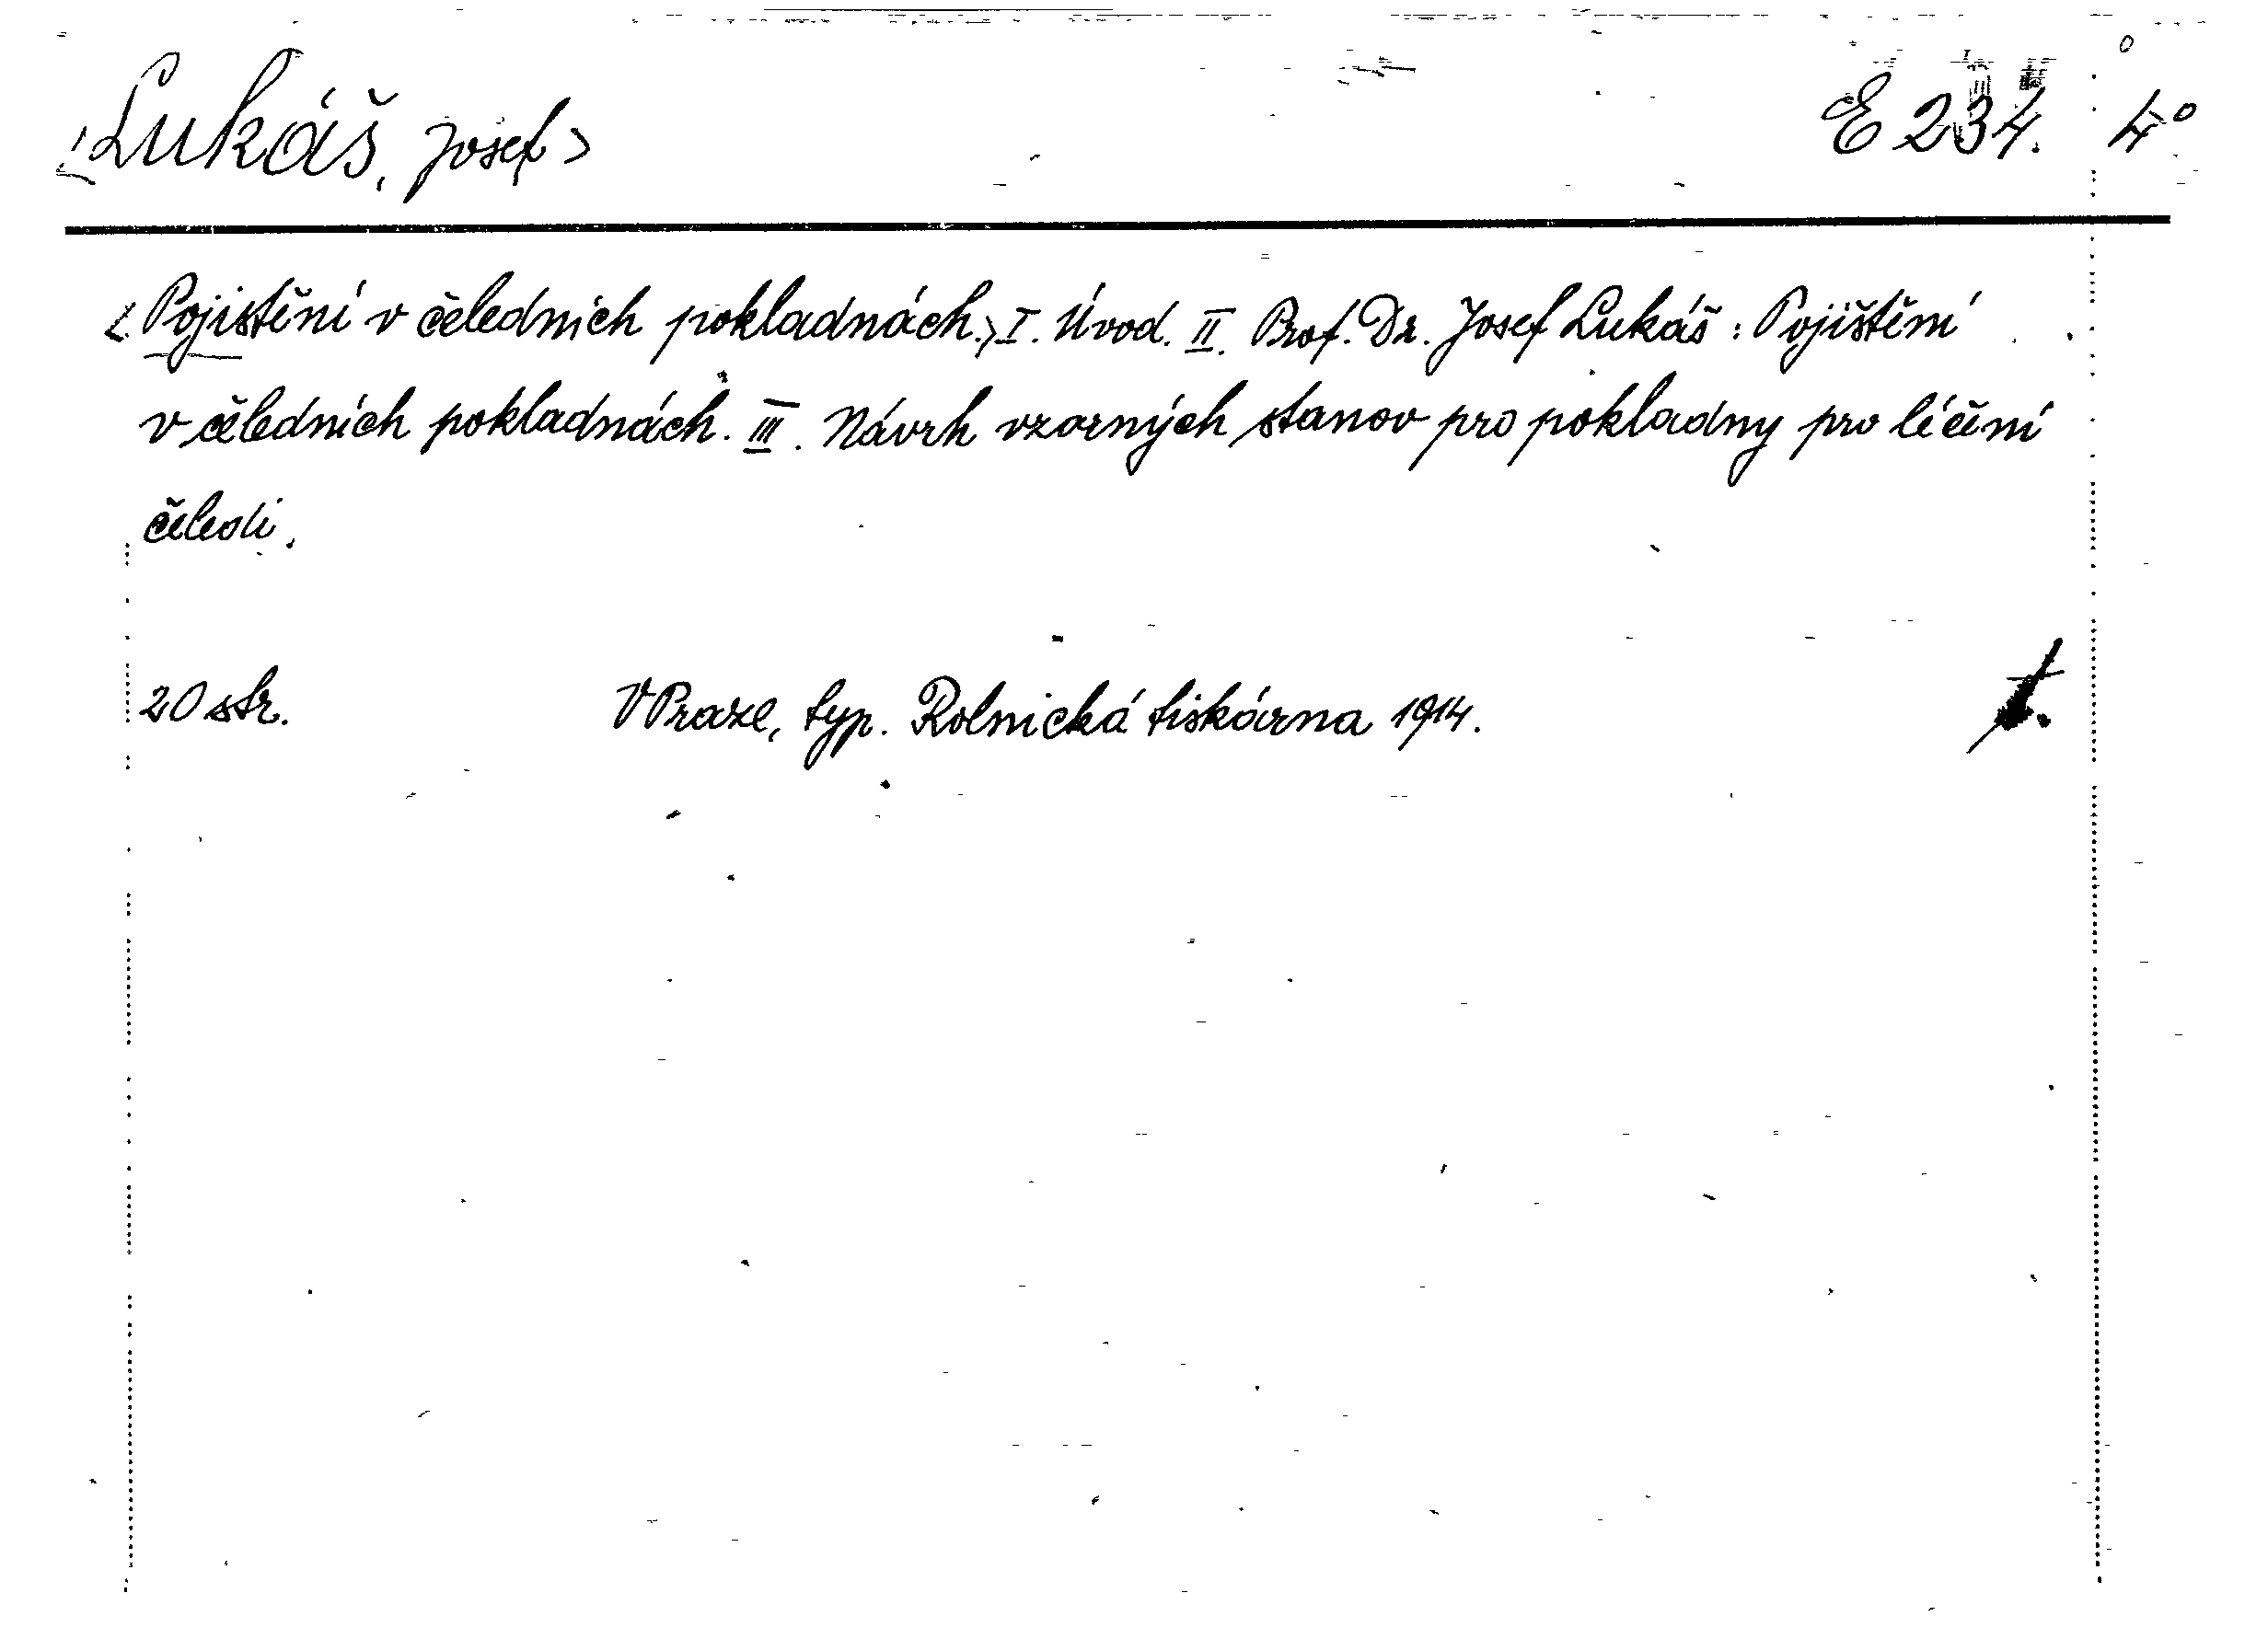 <Lukáš, Josef> E 234. 4°
<Pojistění v čeledních pokladnách.> I. Úvod. II. Prof. Dr. Josef Lukáš: Pojištění
v čeledních pokladnách. III. Návrh vzorných stanov pro pokladny pro léčení
čeledi.
20 str. V Praze, typ. Rolnická tiskárna 1914.